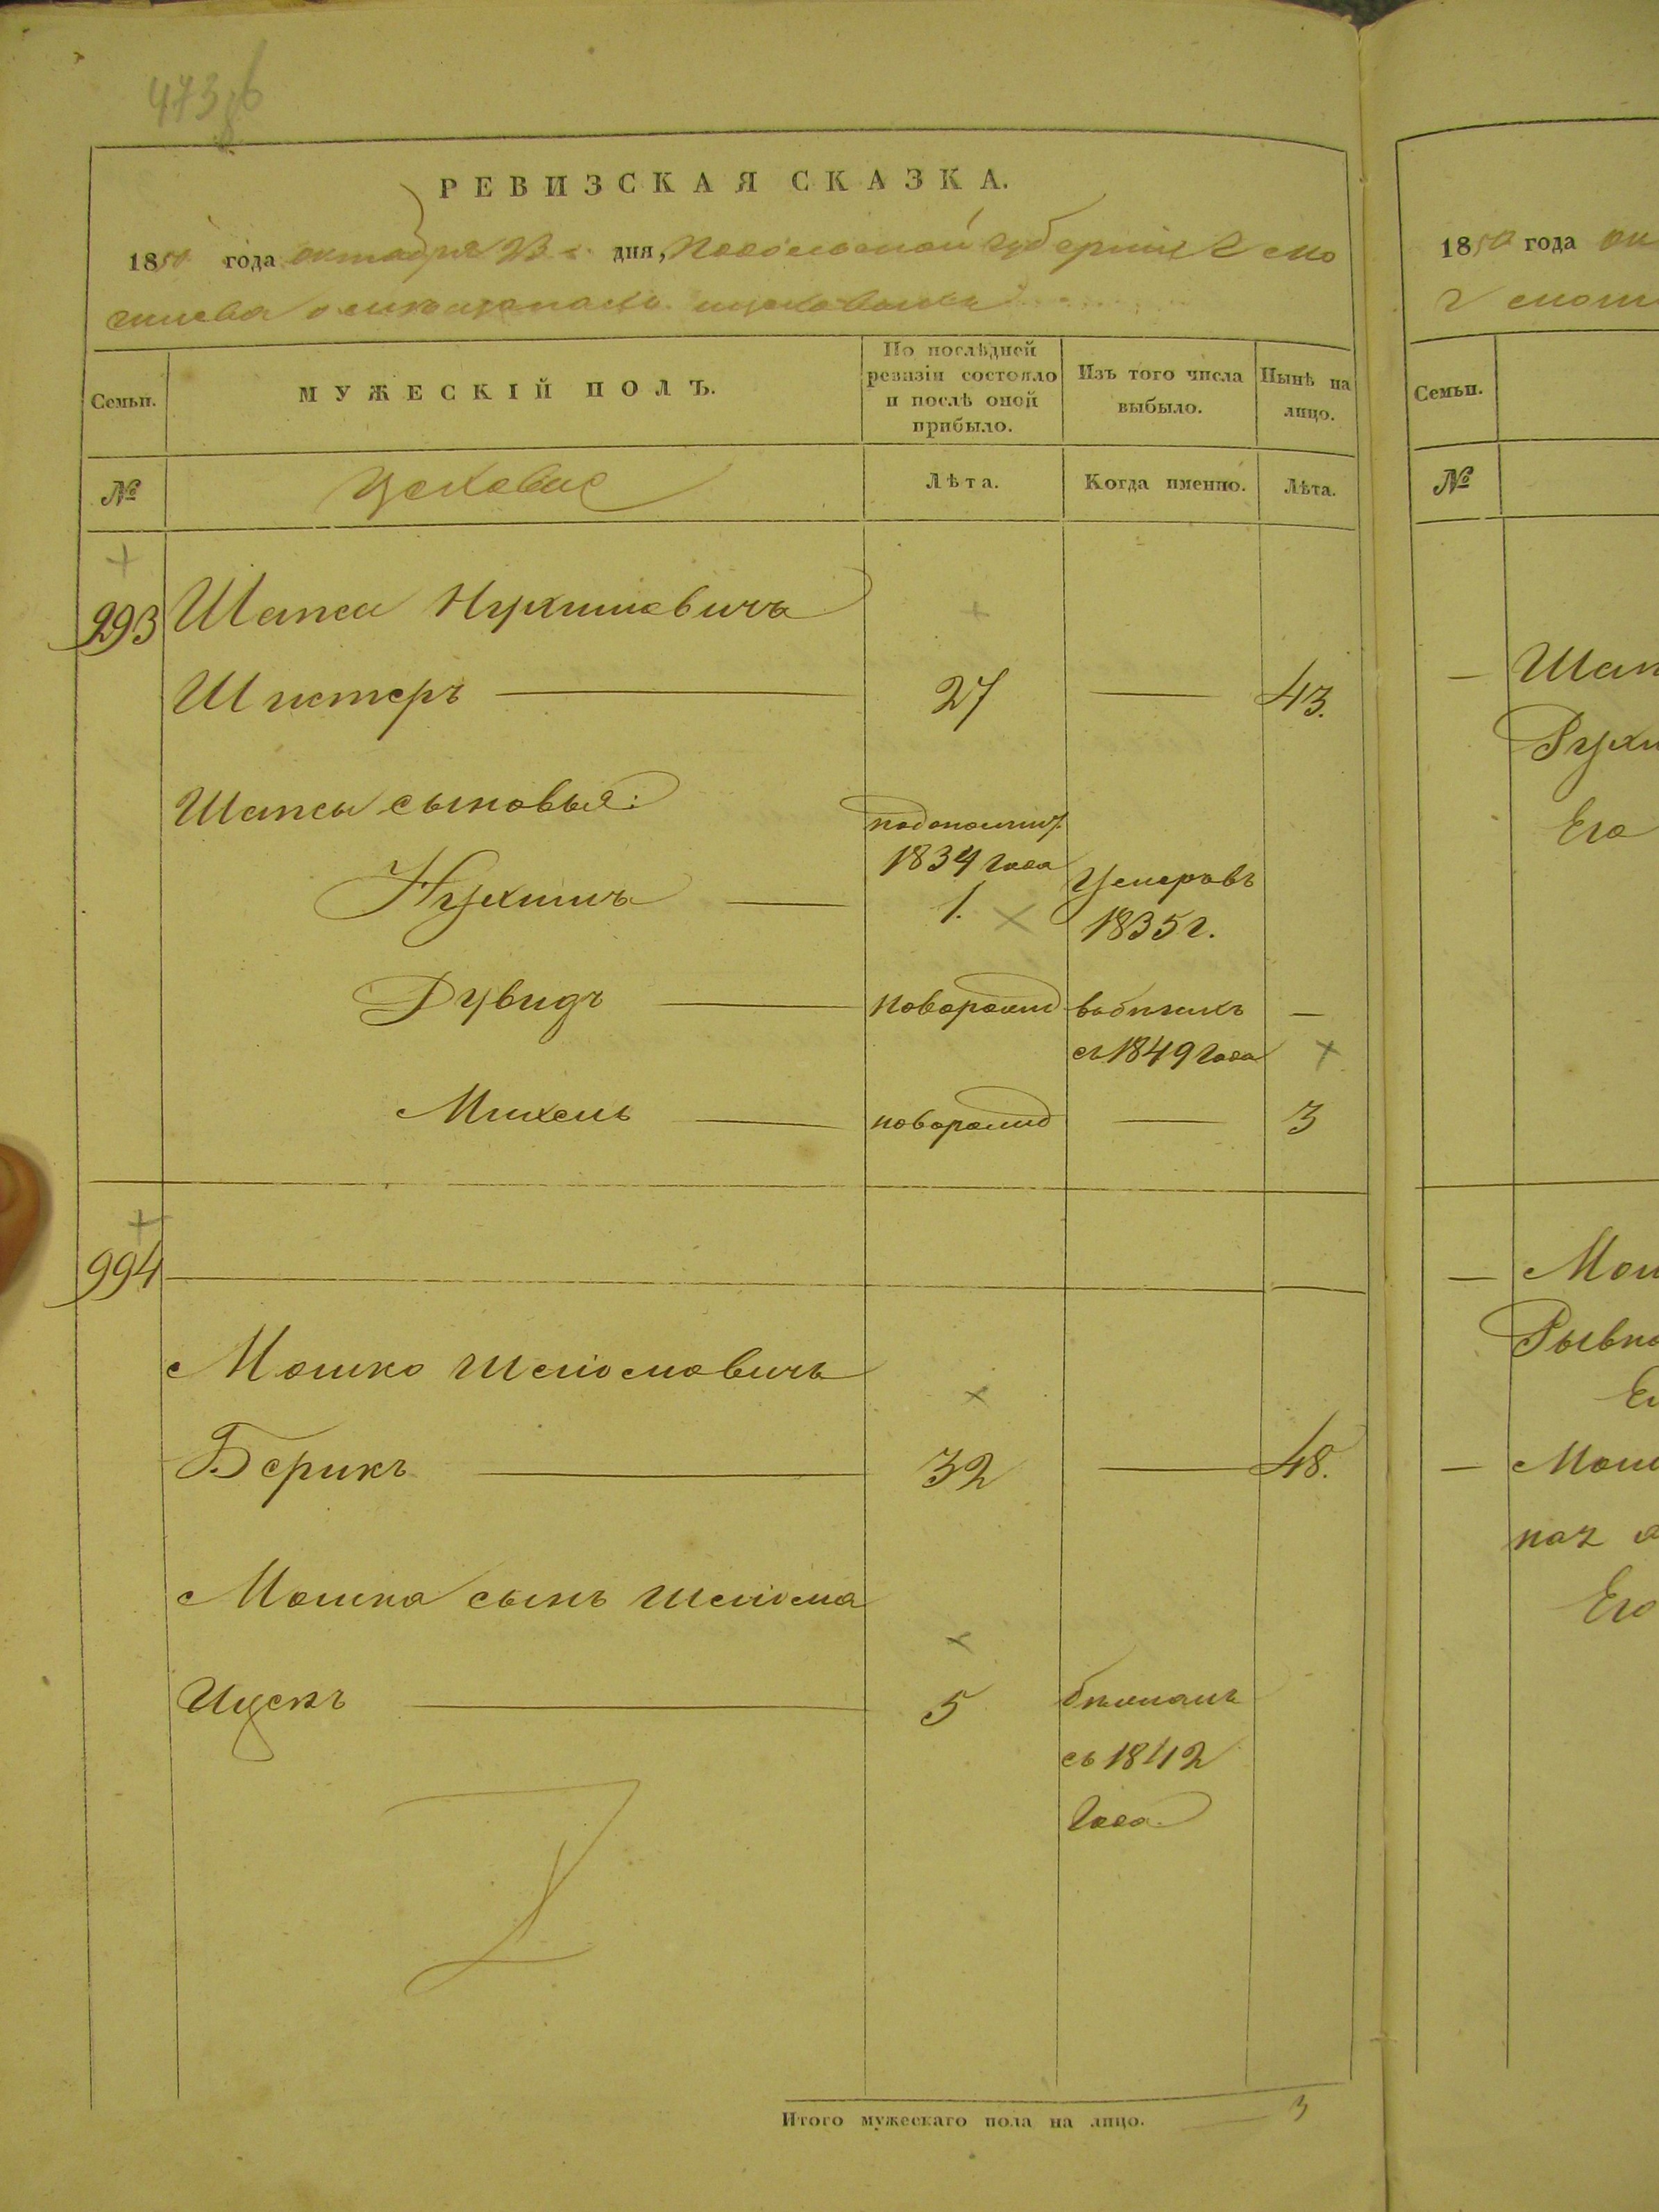 473 об
РЕВИЗСКАЯ СКАЗКА.
1850 года октября 23 дня, Подольской губернии г. Мо
гилева о мещанахъ
Семьи.
МУЖЕСКІЙ ПОЛЪ.
По послѣдней ревизіи состояло и послѣ оной прибыло.
Изъ того числа выбыло.
Нынѣ на лицо.
№
Лѣта.
Когда именно.
Лѣта.
293
Шапса Нухимовичъ
Шистеръ 27 43.
Шапсы сыновья:
Нухимъ
1834 года
1.
Умеръ въ
1835 г.
Дувидъ новорожд въ бѣгахъ
съ 1849 года
Михель новорожд 3
994
Мошко Шлiомовичъ
Берикъ 32 48.
Мошка сынъ Шлiома
Ицекъ 5
съ 1842
года
Итого мужескаго пола на лицо. 3
1850 года ок
Семьи.
№
Шап
Рухи
Его
Мош
Рывка
Ег
Мош
Его